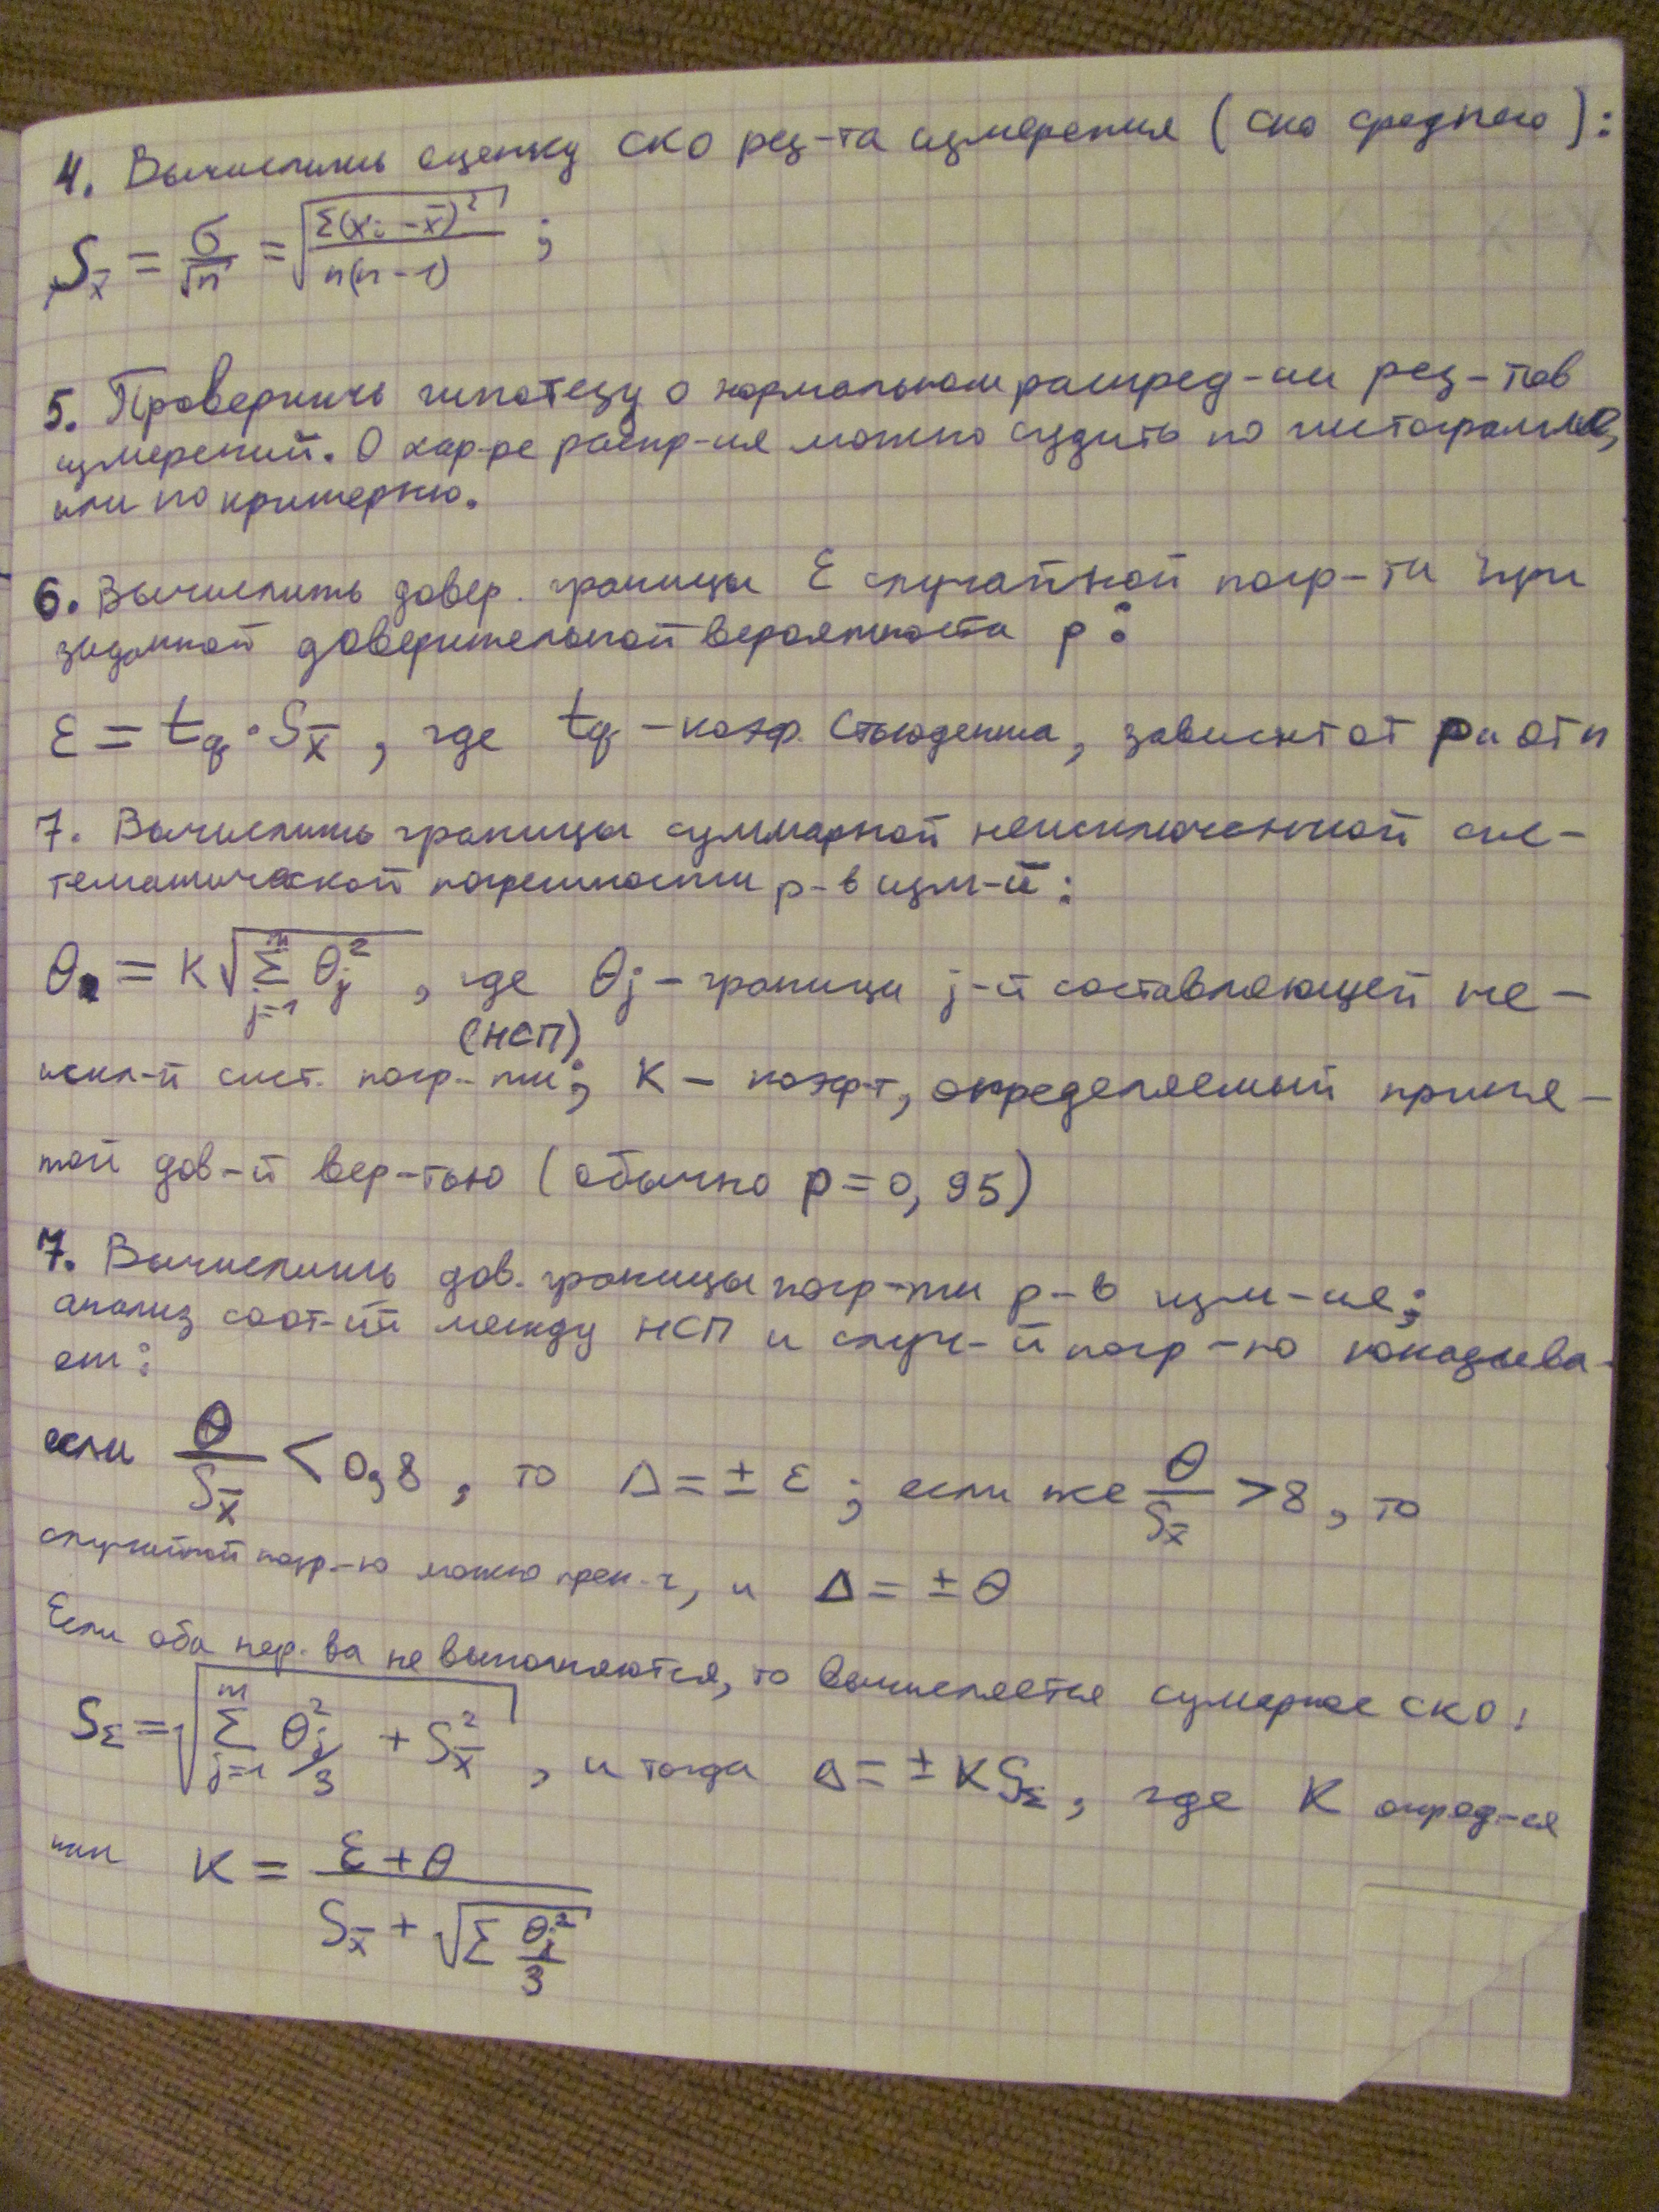 4. Вычислить оценку СКО рез-та измерения (ско среднего):
S_x̄ = σ/√n = √(Σ(xᵢ - x̄)²/n(n-1)) ;
5. Проверить гипотезу о нормальном распред-ии рез-тов
измерений. О хар-ре распр-ия можно судить по гистограмме,
или по критерию.
6. Вычислить довер. границы ε случайной погр-ти при
заданной доверительной вероятности p:
ε = t_q · S_x̄ , где t_q - коэф. Стьюдента, зависит от p и от n
7. Вычислить границы суммарной неисключенной сис-
тематической погрешности р-в изм-й:
θ = K√(Σ_{j=1}^{m} θ_j²) , где θ_j - границы j-й составляющей не-
(НСП)
искл-й сист. погр-ти; K - коэф-т, определяемый приня-
той дов-й вер-тью (обычно p=0,95)
7. Вычислить дов. границы погр-ти р-в изм-ия;
анализ соот-ий между НСП и случ-й погр-ю показыва-
ет:
если θ/S_x̄ < 0,8 , то Δ = ± ε ; если же θ/S_x̄ > 8 , то
случайной погр-ю можно прен-ч, и Δ = ± θ
Если оба нер-ва не выполняются, то вычисляется сумарное СКО:
S_Σ = √(Σ_{j=1}^{m} θ_j²/3 + S_x̄²) , и тогда Δ = ± K S_Σ , где K опред-ся
как K = (ε + θ)/(S_x̄ + √(Σ θ_j²/3))